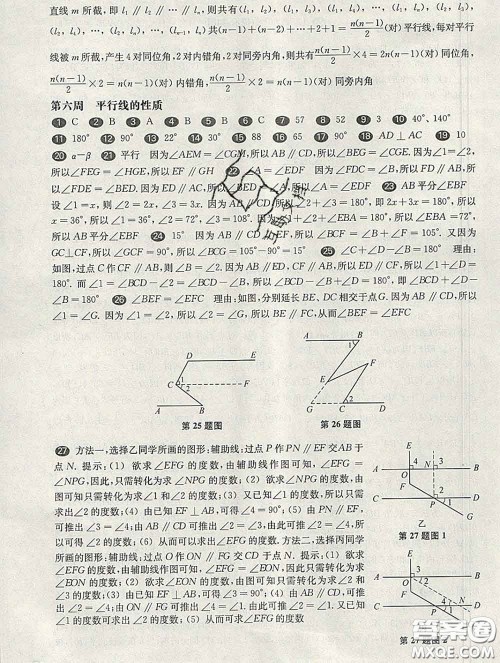 直线 m 所截，即 l₁ ∥ l₂ ∥ … ∥ lₙ，则共有(l₁, l₂)，(l₁, l₃)，
(l₁, lₙ)共(n−1)+(n−2)+…+2+1=n(n−1)/2(对)平行线，每对平行
线被 m 所截，产生4对同位角，2对内错角，2对同旁内角，则共有n(n−1)/2×4=2n(n−1)(对)同位角，
n(n−1)/2×2=n(n−1)(对)内错角，n(n−1)/2×2=n(n−1)(对)同旁内角
第六周 平行线的性质
1 C 2 B 3 A 4 B 5 C 6 C 7 57 8 52 9 63 10 40°、140°
11 180° 12 90° 13 22° 14 90° 15 88 16 65 17 90° 18 AD⊥AC 19 10
20 α−β 21 平行 因为∠AEM=∠CGM，所以 AB∥CD，所以∠BEG=∠CGE. 因为∠1=∠2，
所以∠FEG=∠HGE，所以 EF∥GH 22 ∠A=∠EDF 因为 AC∥DE，所以∠A=∠BED. 因为 AB∥DF，
所以∠FDE=∠BED. 因为 ED∥AC，所以∠A=∠EDF 23 AB 平分∠EBF
设∠1=x，则∠2=2x，∠3=3x. 因为 AB∥CD，所以∠2+∠3=180°，即 2x+3x=180°，所以
x=36°，所以∠1=36°，∠2=72°，∠3=108°. 因为∠1+∠2+∠EBA=180°，所以∠EBA=72°=∠2，
所以 AB 平分∠EBF 24 15° 因为 AB∥CD，所以∠BCD=∠B=105°. 因为 AB∥EF，所以 CD∥EF. 又因为
GC⊥CF，所以∠GCF=90°，所以∠BCG=105°−90°=15° 25 ∠C+∠D−∠B=180° 理由：
如图，过点 C 作 CF∥AB，则∠B=∠2. 因为 AB∥DE，CF∥AB，所以 CF∥DE，所以∠1+∠D=
180°. 而∠1=∠BCD−∠2=∠BCD−∠B，所以∠1+∠D=∠BCD−∠B+∠D=180°，即∠BCD+∠D
−∠B=180° 26 ∠BEF=∠EFC 理由：如图，分别延长 BE、DC 相交于点 G. 因为 AB∥CD，所以
∠1=∠G. 因为∠1=∠2，所以∠2=∠G，所以 BE∥FC，从而∠BEF=∠EFC
D E
C 1 F
2
A B
第 25 题图
A B
1
E F
G C 2 D
第 26 题图
27 方法一，选择乙同学所画的图形：辅助线：过点 P 作 PN∥EF 交 AB 于
点 N. 提示：(1) 欲求∠EFG 的度数，由辅助线作图可知，∠EFG=
∠NPG，因此，只需转化为求∠NPG 的度数；(2) 欲求∠NPG 的度数，由
图可知只需转化为求∠1 和∠2 的度数；(3) 又已知∠1 的度数，所以只需
求出∠2 的度数；(4) 由已知 EF⊥AB，可得∠4=90°；(5) 由 PN∥EF，
可推出∠3=∠4；由 AB∥CD 可推出∠2=∠3，由此可推∠2=∠4=
90°；(6) 从而可以求出∠EFG 的度数. 方法二，选择丙同学所画的图形：
辅助线：过点 O 作 ON∥FG 交 CD 于点 N. 提示：(1) 欲求
∠EFG 的度数，由辅助线作图可知，∠EFG=∠EON，因此只需转化为求
∠EON 的度数；(2) 欲求∠EON 的度数，由图可知只需转化为求∠2 和
∠3 的度数；(3) 由已知 EF⊥AB，可得∠3=90°；(4) 由 ON∥FG，可推
出∠1=∠4；由 AB∥CD 可推出∠2=∠4，由此可推∠2=∠1. 又已知
∠1 的度数可求出∠2；(5) 从而可以求出∠EFG 的度数
乙
第 27 题图 1
第 27 题图 2